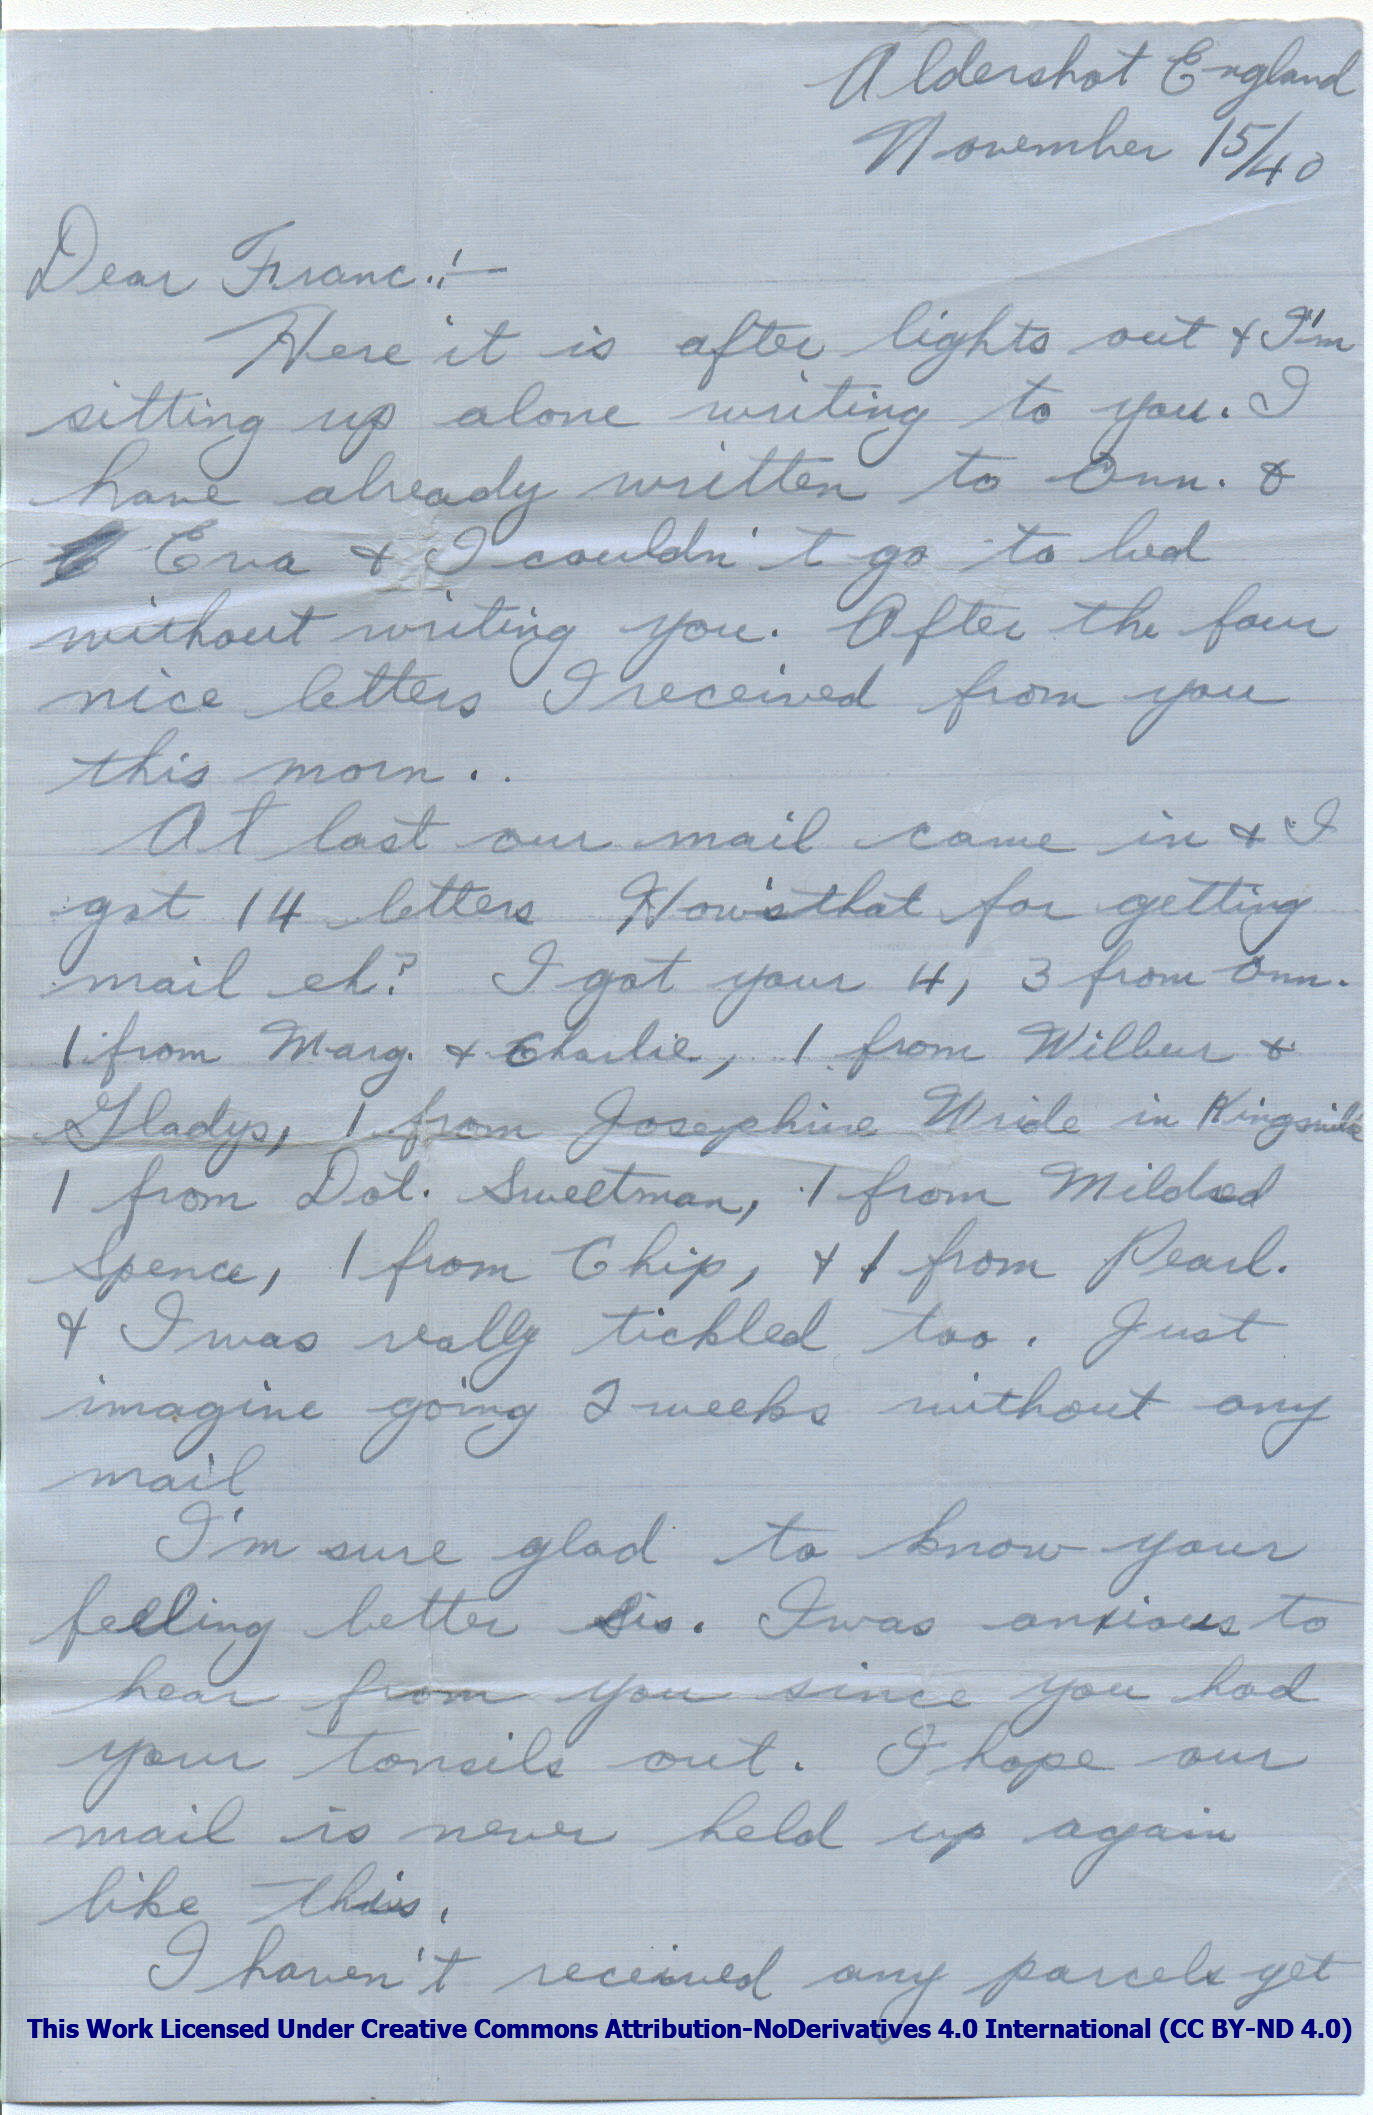 Aldershot England
November 15/40
Dear Franc:!—
Here it is after lights out & I'm
sitting up alone writing to you. I
have already written to Onn. &
Eva & I couldn't go to bed
without writing you. After the four
nice letters I received from you
this morn..
At last our mail came in & I
got 14 letters How's that for getting
mail eh? I got your 4, 3 from Onn.
1 from Marg. & Charlie, 1 from Wilbur &
Gladys, 1 from Josephine Wride in Kingsville
1 from Dot. Sweetman, 1 from Mildred
Spence, 1 from Chip, & 1 from Pearl.
& I was really tickled too. Just
imagine going 2 weeks without any
mail
I'm sure glad to know your
feeling better Sis. I was anxious to
hear from you since you had
your tonsils out. I hope our
mail is never held up again
like this.
I haven't received any parcels yet
This Work Licensed Under Creative Commons Attribution-NoDerivatives 4.0 International (CC BY-ND 4.0)